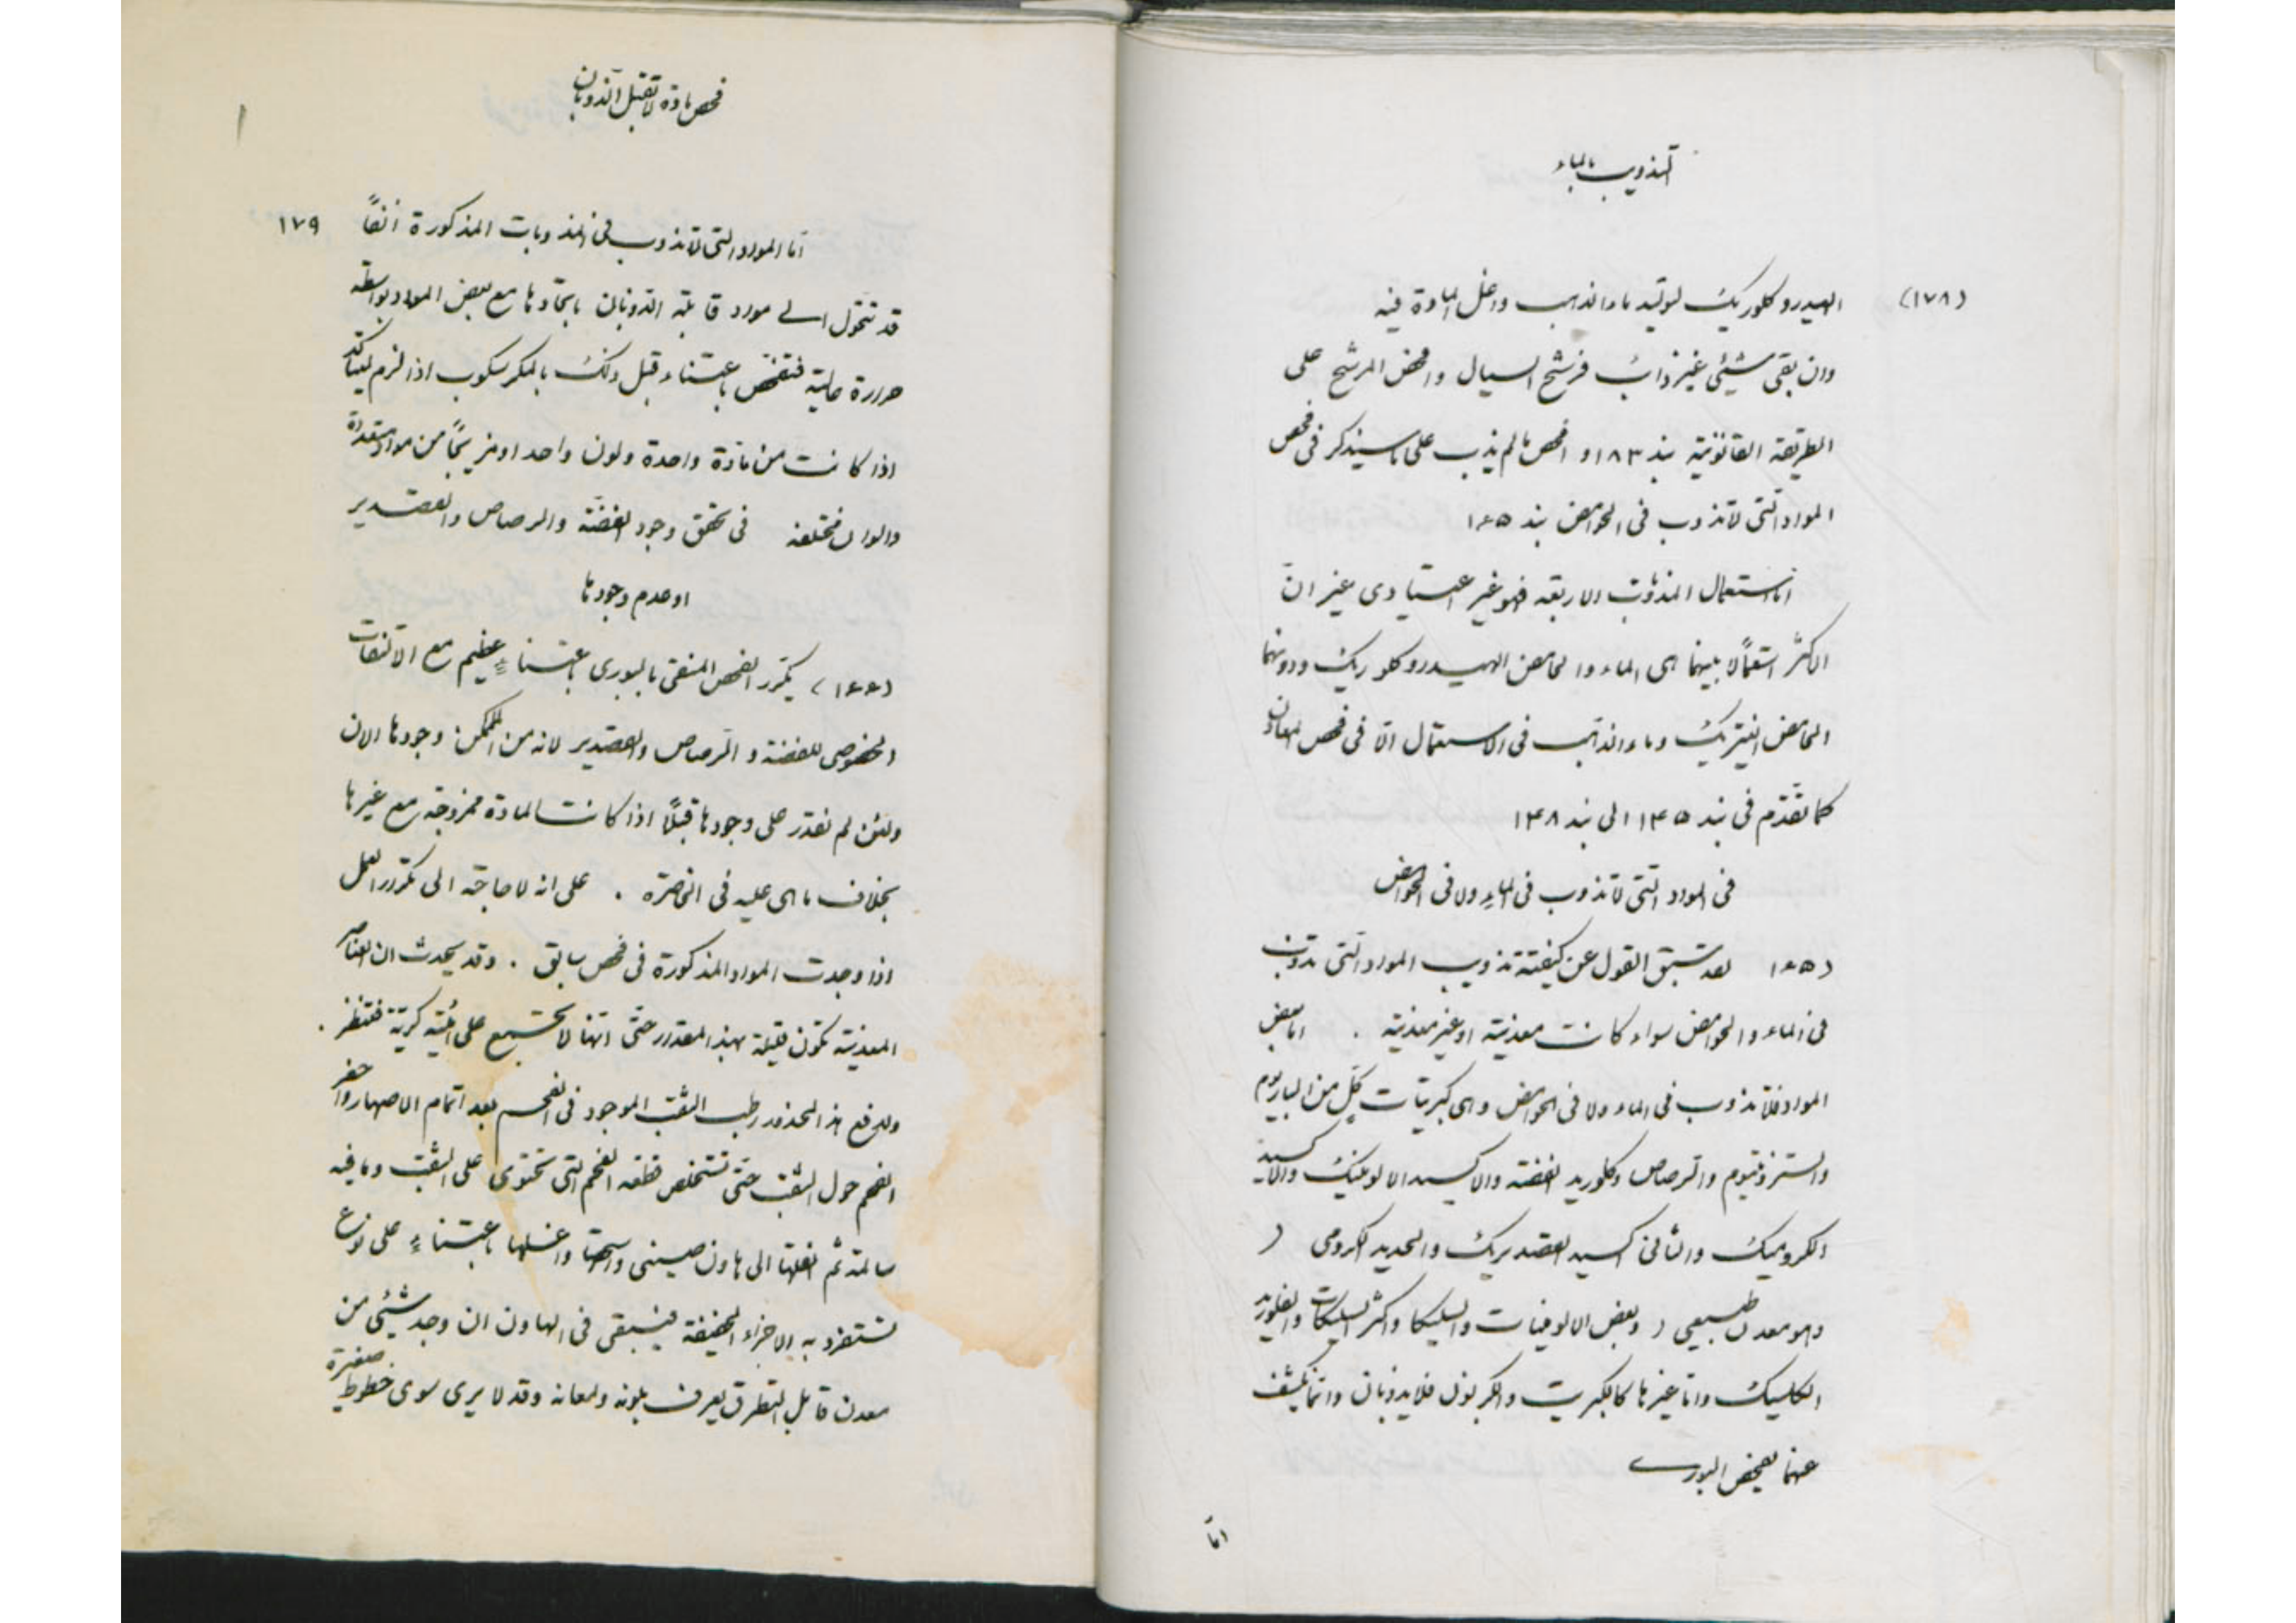 التذويب بالماء
(١٧٨)
الهيدروكلوريك لتوليد ماء الذهب واغل المادة فيه
وان بقى شيئى غير ذائب فرشح السيال وافحص المرشح على
الطريقة القانونية بند ١٨٣ و افحص ما لم يذب على ما سيذكر فى فحص
المواد التى لا تذوب فى الحوامض بند ١٦٥
اما استعمال المذوبات الاربعة فهو غير اعتيادى غير ان
الاكثر استعمالا بينهما هى الماء والحامض الهيدروكلوريك ودونهما
الحامض النيتريك وماء الذهب فى الاستعمال الا فى فحص المعادن
كما تقدم فى بند ١٤٥ الى بند ١٤٨
فى المواد التى لا تذوب فى الماء ولا فى الحوامض
(١٦٥ لقد سبق القول عن كيفية تذويب المواد التى تذوب
فى الماء والحوامض سواء كانت معدنية او غير معدنية . اما بعض
المواد فلا تذوب فى الماء ولا فى الحوامض وهى كبريتات كل من الباريوم
والسترونتيوم والرصاص وكلوريد الفضة والاكسيد الالومنيك والاكسيد
الكروميك والثانى اكسيد القصديريك والحديد الكرومى (
وهو معدن طبيعى ) وبعض الالومينات والسليكا واكثر السليكات والفلوريد
الكلسيك واما غيرها كالكبريت والكربون فلا يذوبان وانما يكشف
عنهما بفحص البورى
اما
فحص مادة لا تقبل الذوبان
١٧٩
اما المواد التى لا تذوب فى المذوبات المذكورة انفًا
قد تتحول الى مواد قابلة الذوبان باتحادها مع بعض المواد بواسطة
حرارة عالية فتفحص باعتناء قبل ذلك بالمكرسكوب اذا لزم ليتاكد
اذا كانت من مادة واحدة ولون واحد او مزيجًا من مواد متعددة
والوان مختلفة فى تحقق وجود الفضة والرصاص والقصدير
او عدم وجودها
(١٦٦) يكرر الفحص المنقى بالبورى باعتناء عظيم مع الالتفات
الخصوصى للفضة والرصاص والقصدير لانه من الممكن وجودها الان
ولئن لم نقدر على وجودها قبلًا اذا كانت المادة ممزوجة مع غيرها
بخلاف ما هى عليه فى الحاضرة . على انه لا حاجة الى تكرر العمل
اذا وجدت المواد المذكورة فى فحص سابق . وقد يحدث ان العناصر
المعدنية تكون قليلة بهذا المقدار حتى انها لا تجتمع على هيئة كرية فتنظر .
ولدفع هذا المحذور رطب الثقب الموجود فى الفحم بعد اتمام الاصهار واحفر
الفحم حول الثقب حتى تستخلص قطعة الفحم التى تحتوى على الثقب وما فيه
سالمة ثم انقلها الى هاون صينى واسحقها واغسلها باعتناء على نوع
تستفرد به الاجزاء الخفيفة فيبقى فى الهاون ان وجد شيئى من
معدن قابل التطرق يعرف بلونه ولمعانه وقد لا يرى سوى خطوط صغيرة